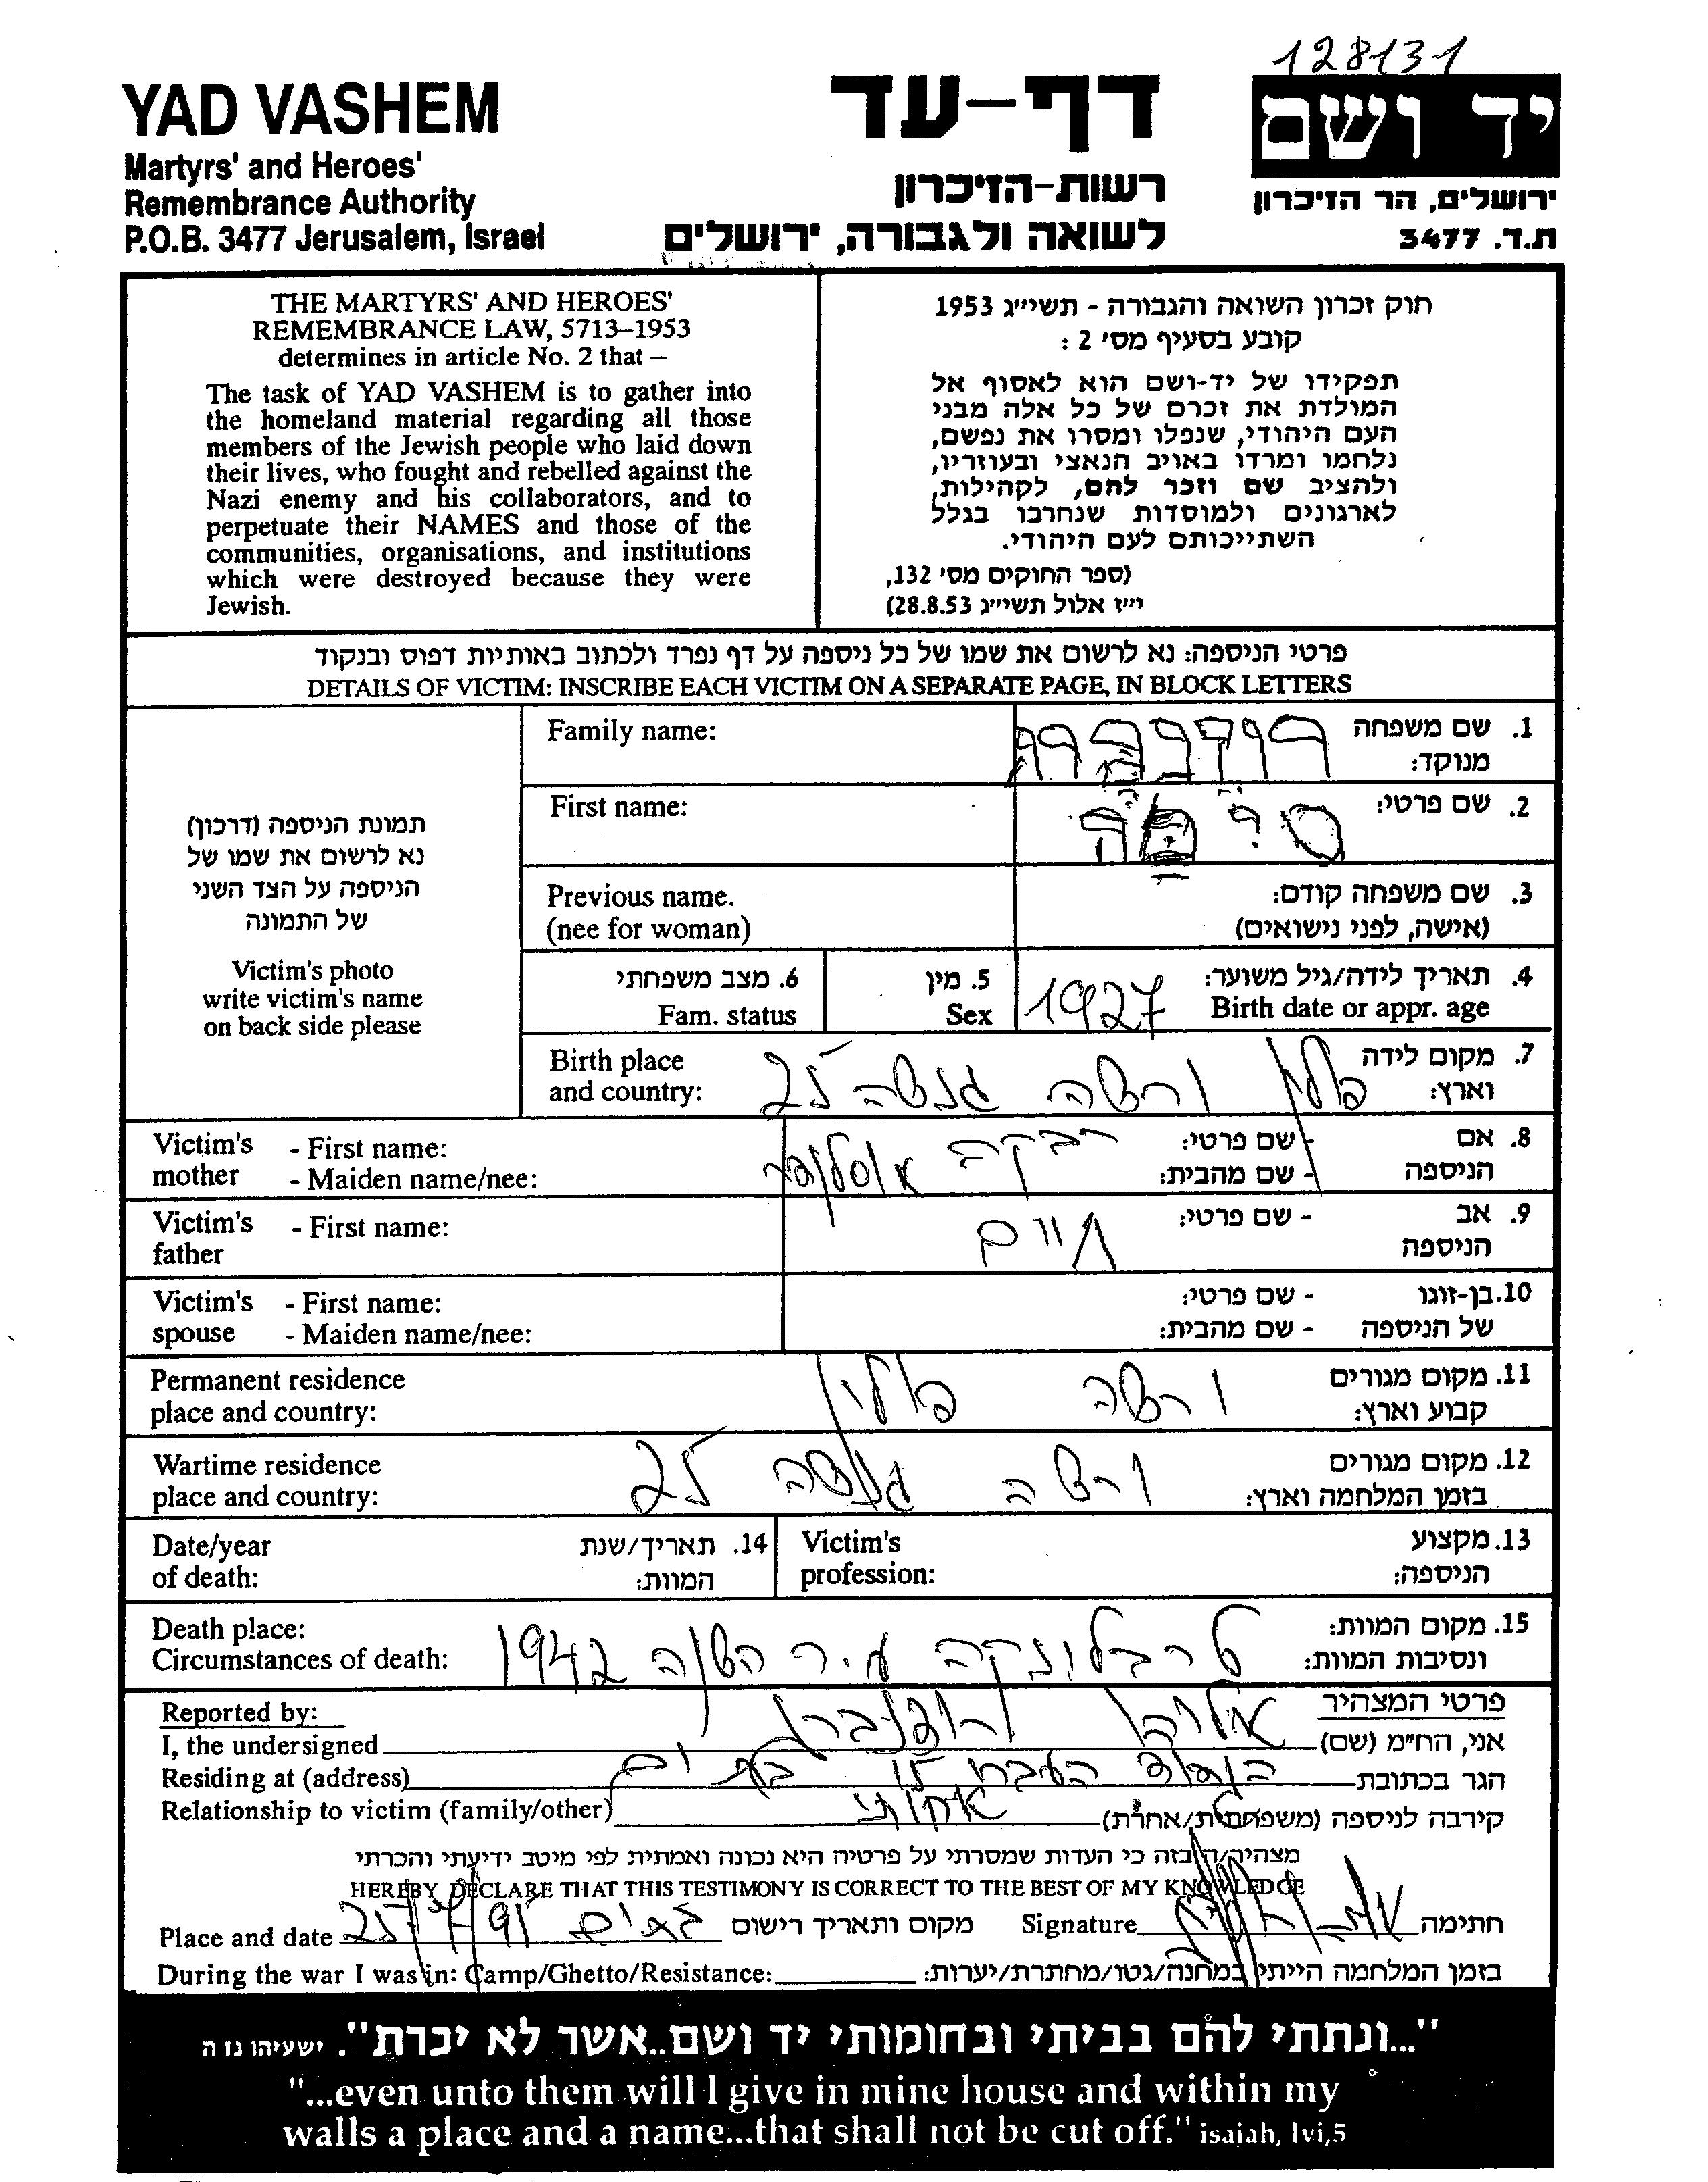 128131
YAD VASHEM
Martyrs' and Heroes'
Remembrance Authority
P.O.B. 3477 Jerusalem, Israel
דף-עד
רשות-הזיכרון
לשואה ולגבורה, ירושלים
יד ושם
ירושלים, הר הזיכרון
ת.ד. 3477
THE MARTYRS' AND HEROES'
REMEMBRANCE LAW, 5713–1953
determines in article No. 2 that –
The task of YAD VASHEM is to gather into
the homeland material regarding all those
members of the Jewish people who laid down
their lives, who fought and rebelled against the
Nazi enemy and his collaborators, and to
perpetuate their NAMES and those of the
communities, organisations, and institutions
which were destroyed because they were
Jewish.
חוק זכרון השואה והגבורה - תשי״ג 1953
קובע בסעיף מס׳ 2 :
תפקידו של יד-ושם הוא לאסוף אל
המולדת את זכרם של כל אלה מבני
העם היהודי, שנפלו ומסרו את נפשם,
נלחמו ומרדו באויב הנאצי ובעוזריו,
ולהציב שם וזכר להם, לקהילות,
לארגונים ולמוסדות שנחרבו בגלל
השתייכותם לעם היהודי.
(ספר החוקים מס׳ 132,
י״ז אלול תשי״ג 28.8.53)
פרטי הניספה: נא לרשום את שמו של כל ניספה על דף נפרד ולכתוב באותיות דפוס ובנקוד
DETAILS OF VICTIM: INSCRIBE EACH VICTIM ON A SEPARATE PAGE, IN BLOCK LETTERS
תמונת הניספה (דרכון)
נא לרשום את שמו של
הניספה על הצד השני
של התמונה
Victim's photo
write victim's name
on back side please
Family name:
1. שם משפחה
מנוקד:
First name:
2. שם פרטי:
Previous name.
(nee for woman)
3. שם משפחה קודם:
(אישה, לפני נישואים)
4. תאריך לידה/גיל משוער: 1927
Birth date or appr. age
5. מין
Sex
6. מצב משפחתי
Fam. status
Birth place
and country:
7. מקום לידה
וארץ:
פולין ורשה גנשה 25
Victim's mother - First name:
- Maiden name/nee:
8. אם הניספה - שם פרטי: רבקה
- שם מהבית:
Victim's father - First name:
9. אב הניספה - שם פרטי: חיים
Victim's spouse - First name:
- Maiden name/nee:
10. בן-זוגו של הניספה - שם פרטי:
- שם מהבית:
Permanent residence
place and country:
11. מקום מגורים
קבוע וארץ:
ורשה פולין
Wartime residence
place and country:
12. מקום מגורים
בזמן המלחמה וארץ:
ורשה גנשה 25
Date/year
of death:
14. תאריך/שנת
המוות:
Victim's
profession:
13. מקצוע
הניספה:
Death place:
Circumstances of death:
15. מקום המוות:
ונסיבות המוות:
טרבלינקה 1942
Reported by:
פרטי המצהיר
I, the undersigned
אני, הח״מ (שם)
Residing at (address)
הגר בכתובת
בת ים
Relationship to victim (family/other)
קירבה לניספה (משפחתית/אחרת)
אחותי
מצהיר/ה בזה כי העדות שמסרתי על פרטיה היא נכונה ואמתית לפי מיטב ידיעתי והכרתי
HEREBY DECLARE THAT THIS TESTIMONY IS CORRECT TO THE BEST OF MY KNOWLEDGE
Place and date
מקום ותאריך רישום
בת ים
Signature
חתימה
During the war I was in: Camp/Ghetto/Resistance:
בזמן המלחמה הייתי במחנה/גטו/מחתרת/יערות:
"...ונתתי להם בביתי ובחומותי יד ושם..אשר לא יכרת". ישעיהו נז ה
"...even unto them will I give in mine house and within my
walls a place and a name...that shall not be cut off." isaiah, lvi,5